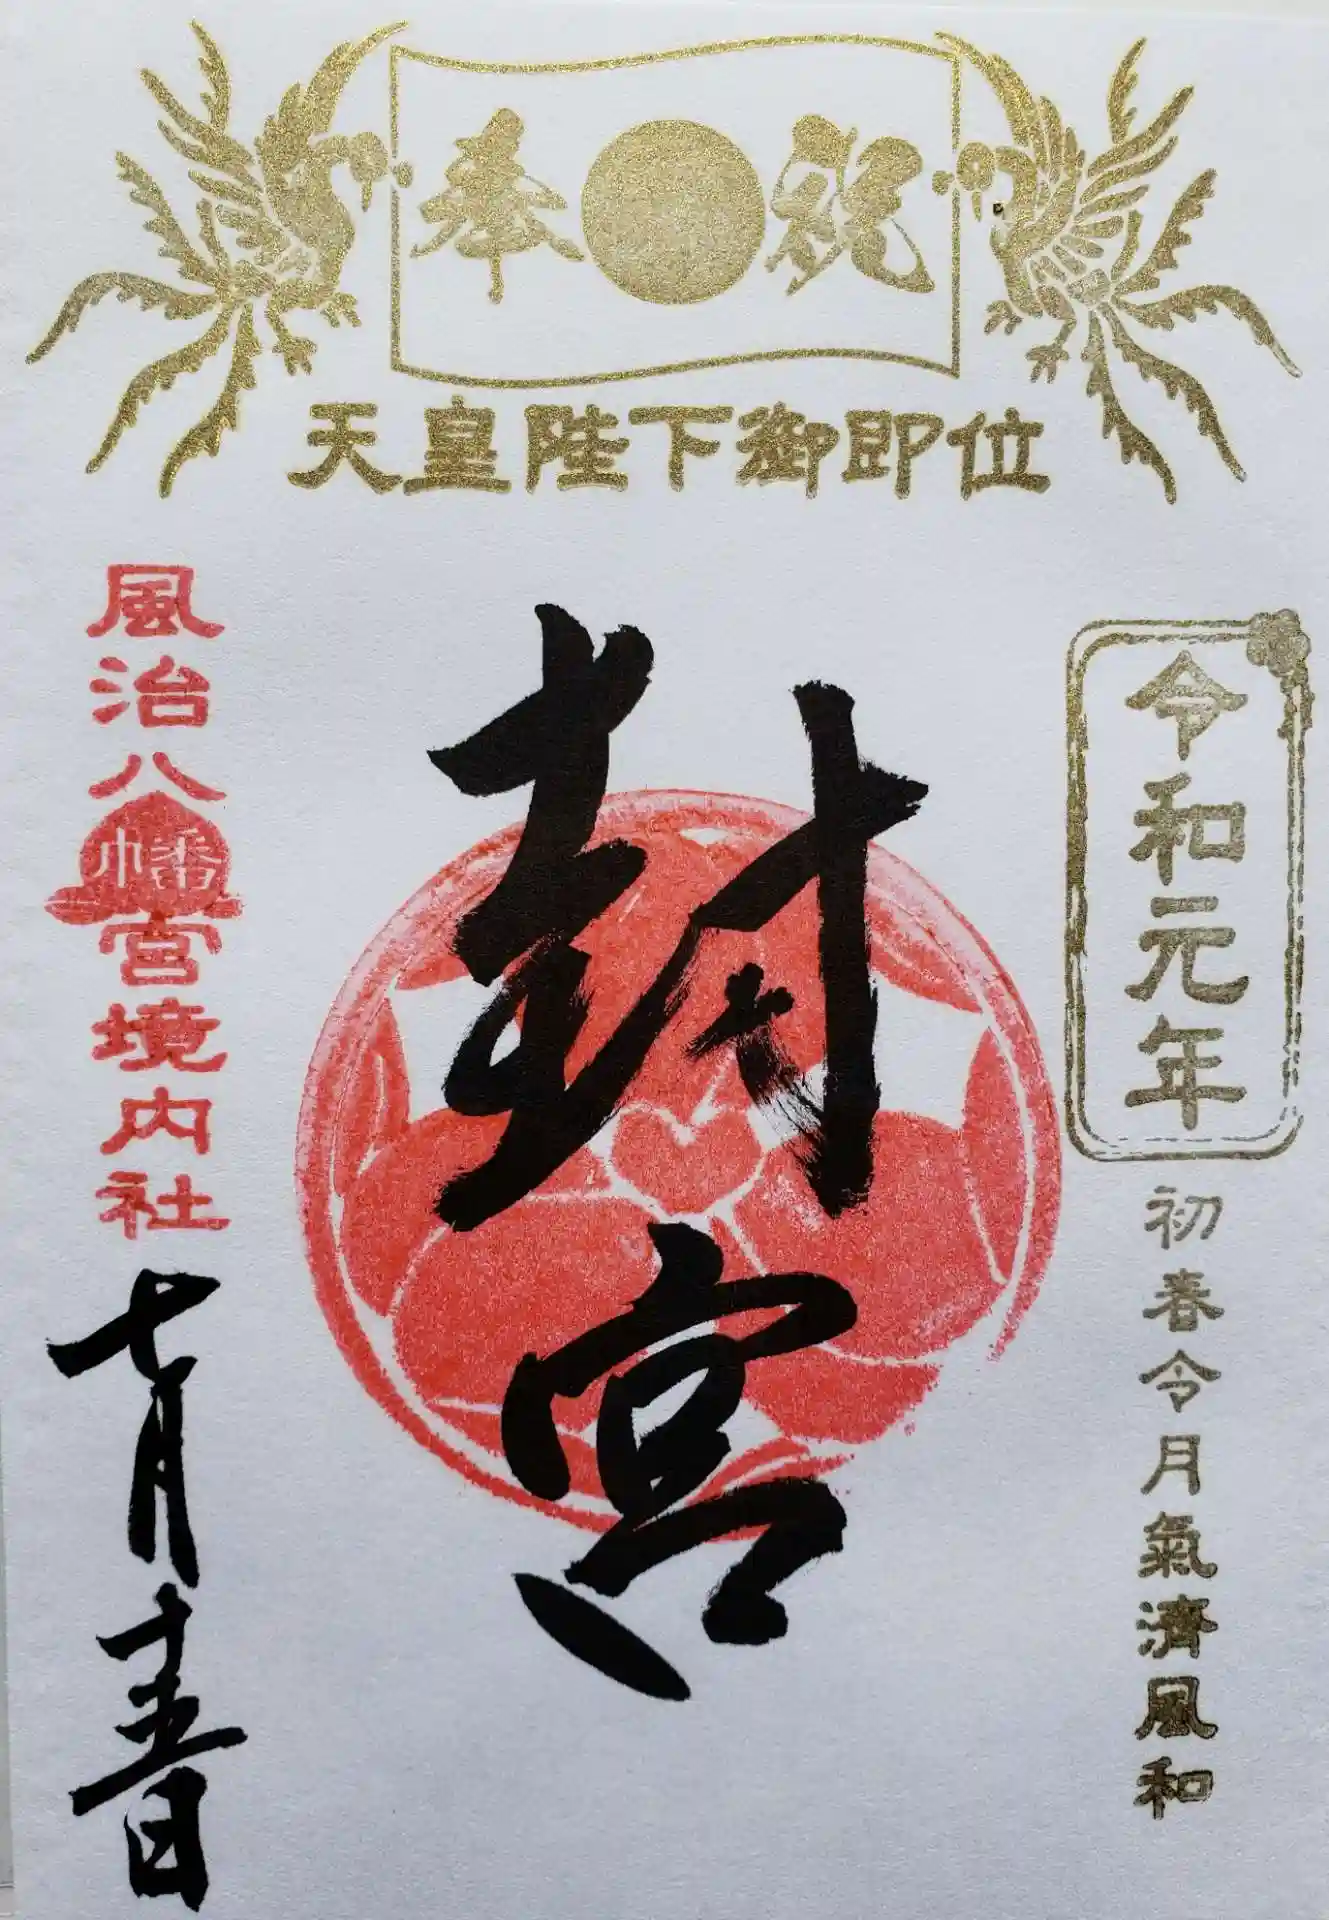 奉祝
天皇陛下御即位
令和元年
初春令月氣濟風和
封宮
風治八幡宮境内社
七月十五日